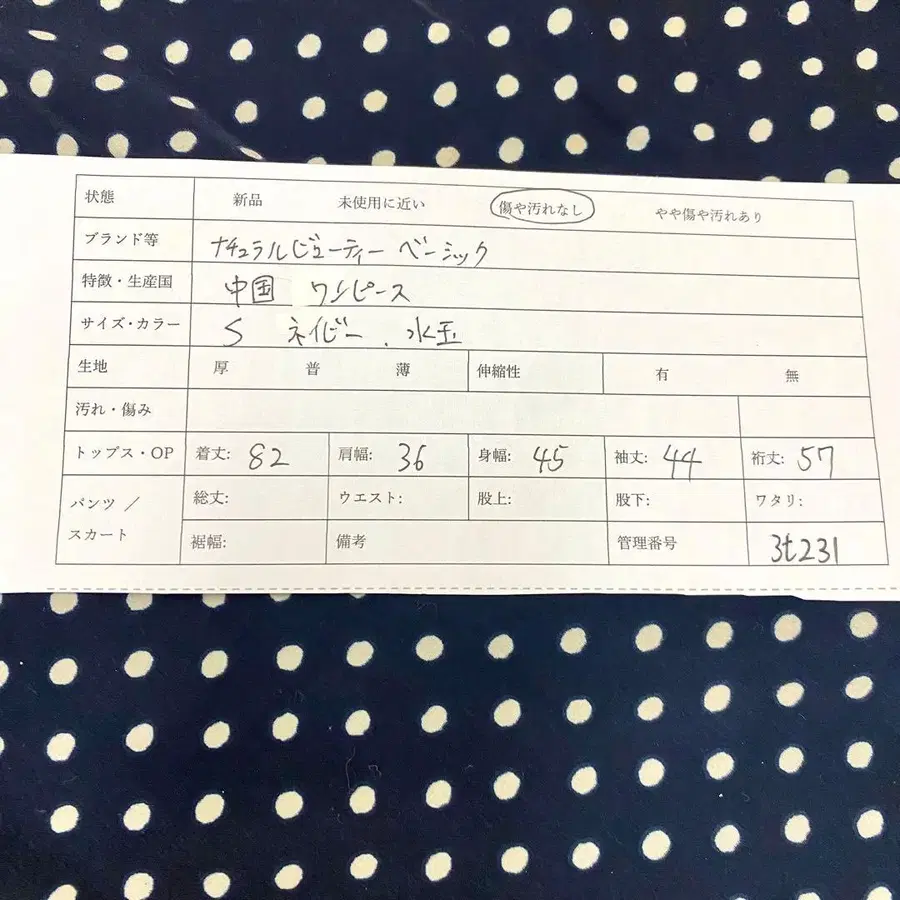 状態 新品 未使用に近い 傷や汚れなし やや傷や汚れあり
ブランド等 ナチュラルビューティー ベーシック
特徴・生産国 中国 ワンピース
サイズ・カラー S ネイビー、水玉
生地 厚 普 薄 伸縮性 有 無
汚れ・傷み
トップス・OP 着丈: 82 肩幅: 36 身幅: 45 袖丈: 44 裄丈: 57
パンツ／スカート 総丈: ウエスト: 股上: 股下: ワタリ:
裾幅: 備考 管理番号 3t231